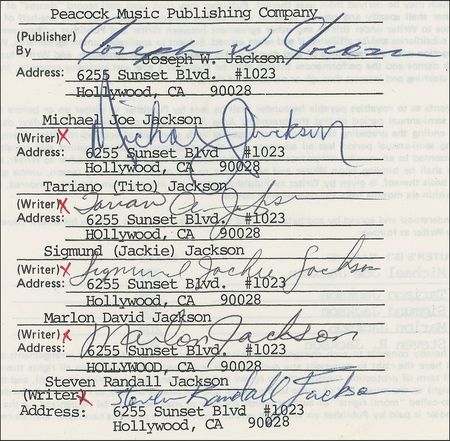 Peacock Music Publishing Company
(Publisher)
By Joseph W. Jackson
Joseph W. Jackson
Address: 6255 Sunset Blvd. #1023
Hollywood, CA 90028
Michael Joe Jackson
(Writer) x Michael Jackson
Address: 6255 Sunset Blvd #1023
Hollywood, CA 90028
Tariano (Tito) Jackson
(Writer) x
Address: 6255 Sunset Blvd. #1023
Hollywood, CA 90028
Sigmund (Jackie) Jackson
(Writer) x Sigmund Jackie Jackson
Address: 6255 Sunset Blvd. #1023
Hollywood, CA 90028
Marlon David Jackson
(Writer) x Marlon Jackson
Address: 6255 Sunset Blvd. #1023
Hollywood, CA 90028
Steven Randall Jackson
(Writer) x Steven Randall Jackson
Address: 6255 Sunset Blvd. #1023
Hollywood, CA 90028